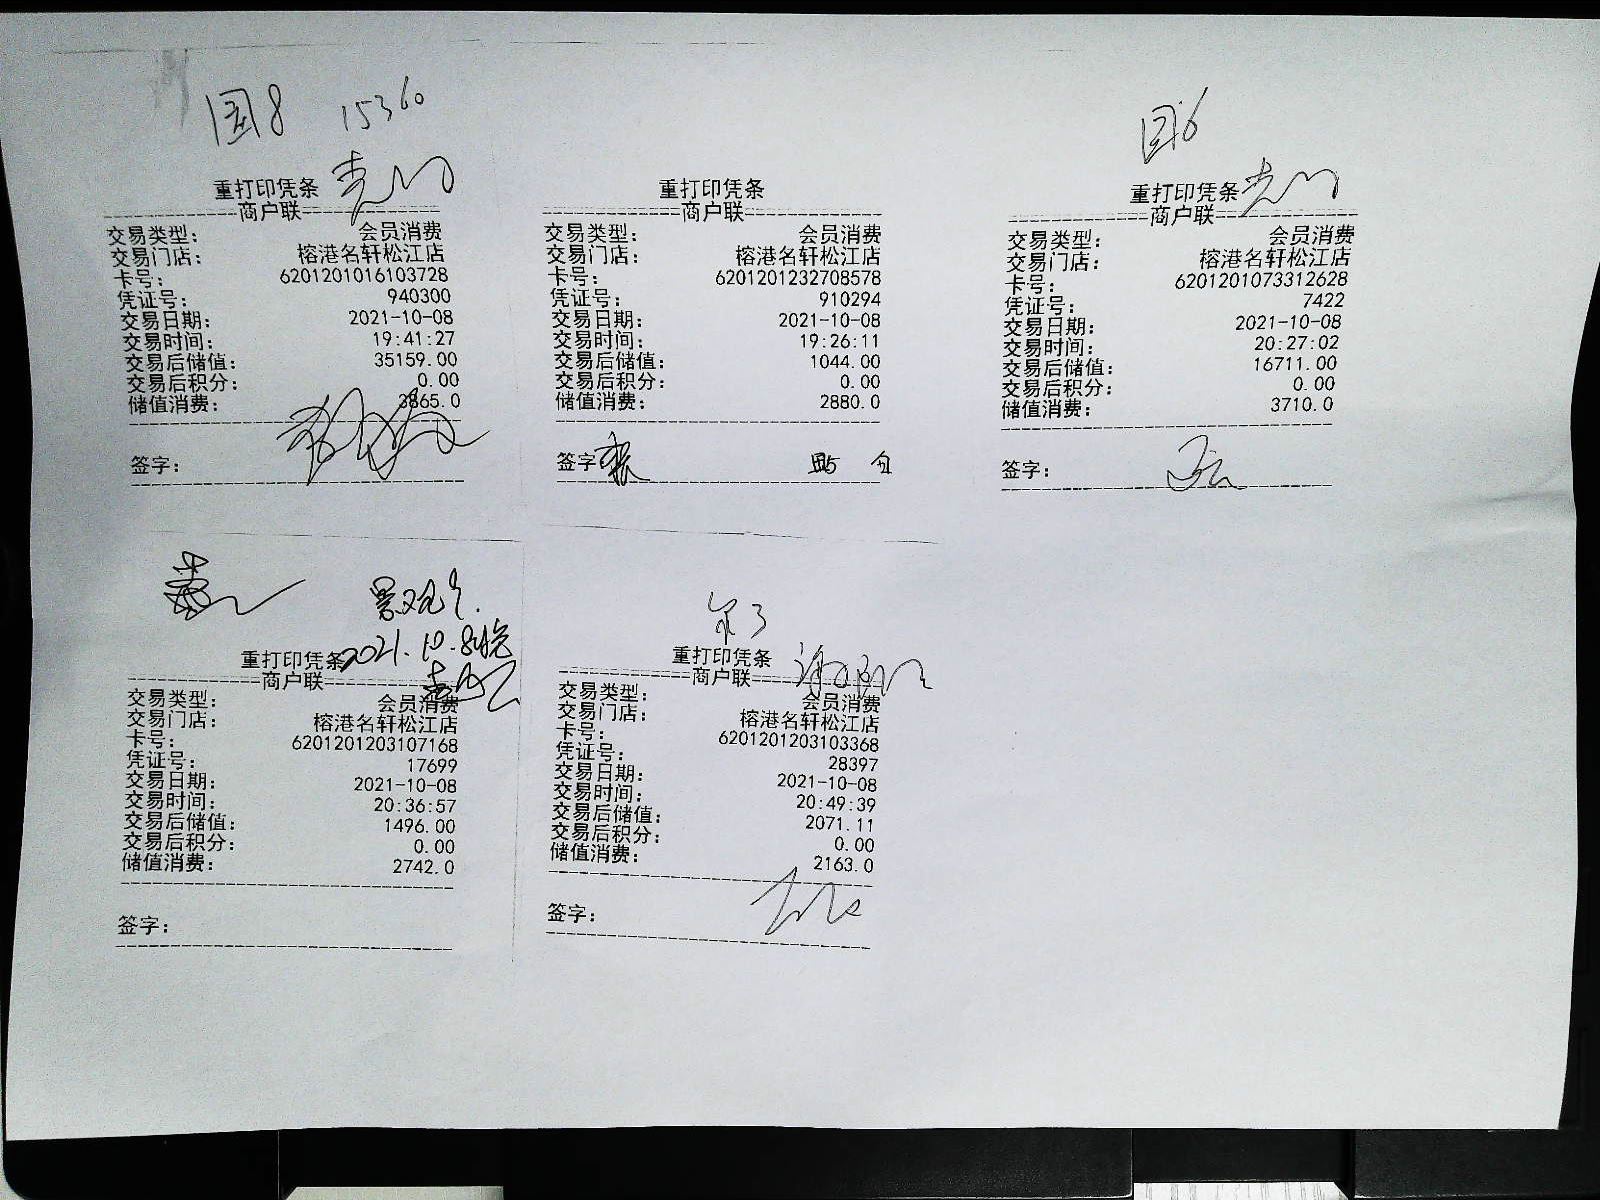 国8 15360
重打印凭条
商户联
交易类型: 会员消费
交易门店: 榕港名轩松江店
卡号: 6201201016103728
凭证号: 940300
交易日期: 2021-10-08
交易时间: 19:41:27
交易后储值: 35159.00
交易后积分: 0.00
储值消费: 3865.0
签字:
重打印凭条
商户联
交易类型: 会员消费
交易门店: 榕港名轩松江店
卡号: 6201201232708578
凭证号: 910294
交易日期: 2021-10-08
交易时间: 19:26:11
交易后储值: 1044.00
交易后积分: 0.00
储值消费: 2880.0
签字
国6
重打印凭条
商户联
交易类型: 会员消费
交易门店: 榕港名轩松江店
卡号: 6201201073312628
凭证号: 7422
交易日期: 2021-10-08
交易时间: 20:27:02
交易后储值: 16711.00
交易后积分: 0.00
储值消费: 3710.0
签字:
2021.10.8晚
重打印凭条
商户联
交易类型: 会员消费
交易门店: 榕港名轩松江店
卡号: 6201201203107168
凭证号: 17699
交易日期: 2021-10-08
交易时间: 20:36:57
交易后储值: 1496.00
交易后积分: 0.00
储值消费: 2742.0
签字:
重打印凭条
商户联
交易类型: 会员消费
交易门店: 榕港名轩松江店
卡号: 6201201203103368
凭证号: 28397
交易日期: 2021-10-08
交易时间: 20:49:39
交易后储值: 2071.11
交易后积分: 0.00
储值消费: 2163.0
签字: